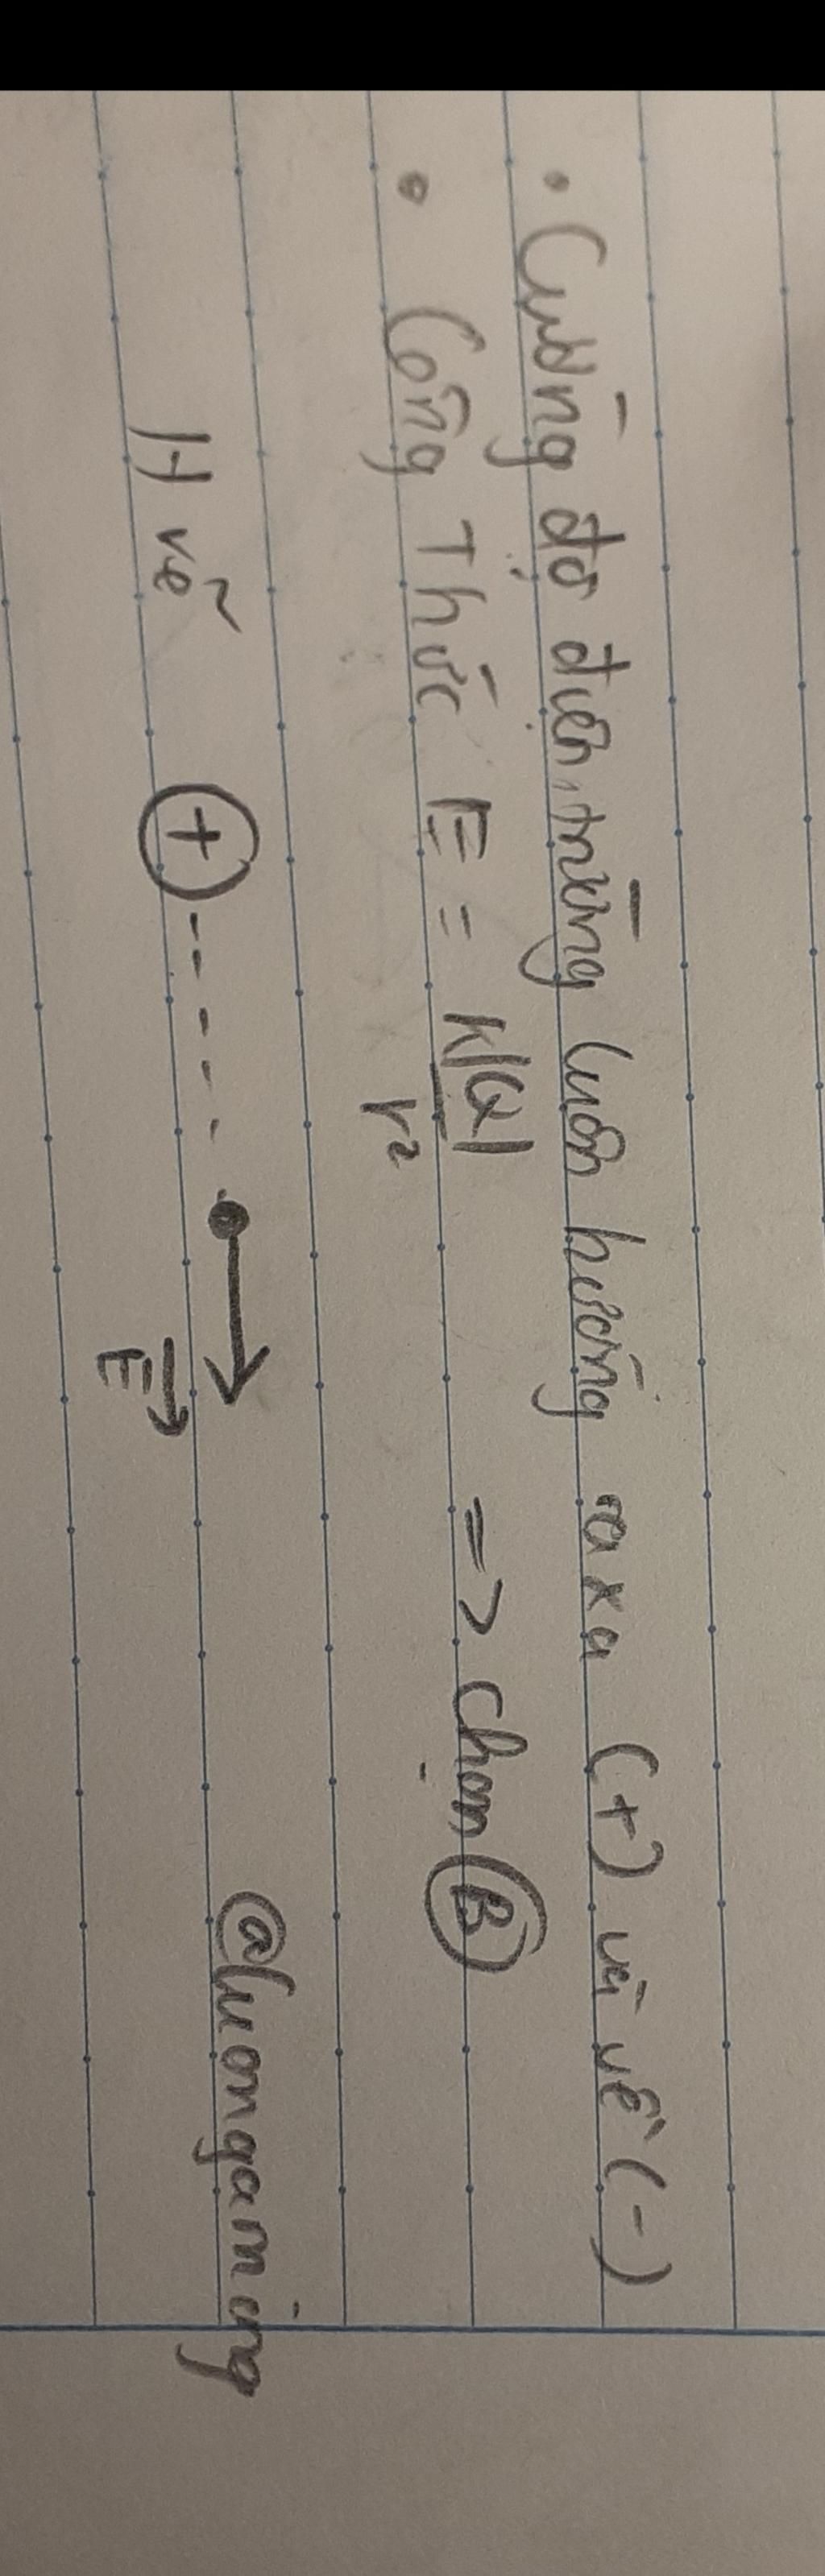 • Cường độ điện trường luôn hướng ra xa (+) và về (-)
• Công Thức E = K|Q| / r² => chọn B
H vẽ + E
@luongaming